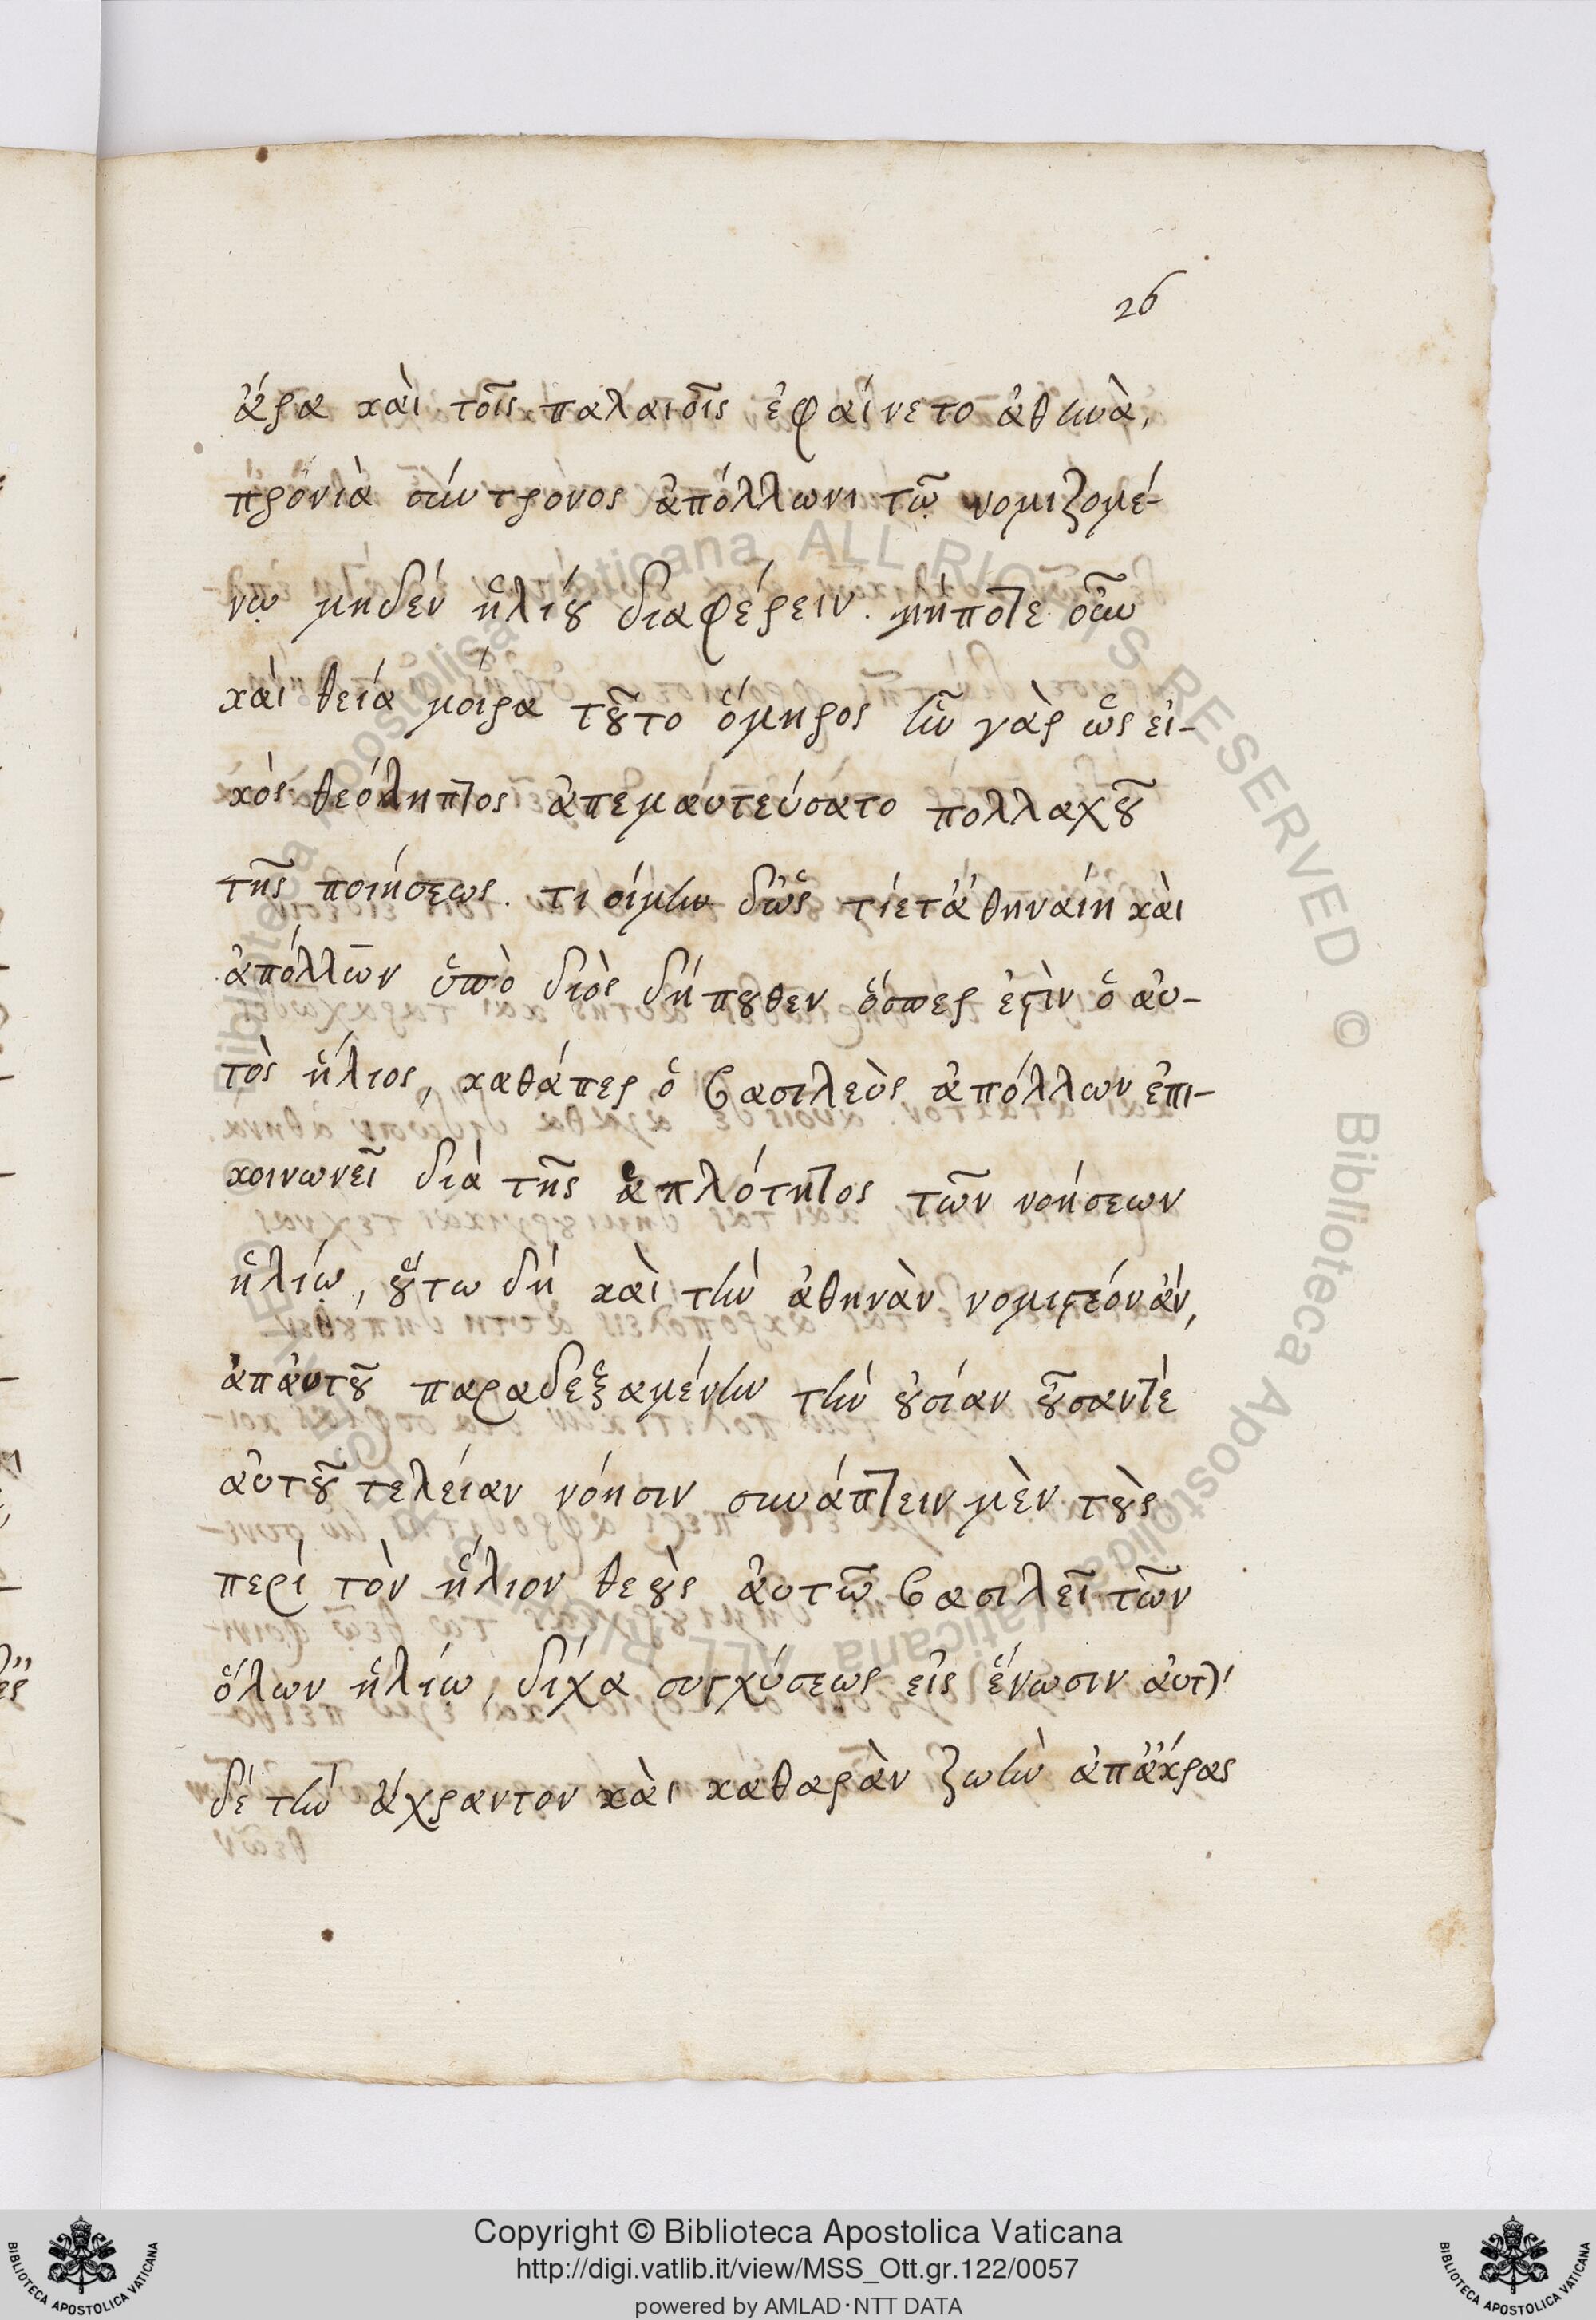 26
ἄρα καὶ τοῖς παλαιοῖς ἐφαίνετο ἀθηνὰ,
πρόνια σύντρονος ἀπόλλωνι τῷ νομιζομέ-
νῳ μηδέν ἡλίου διαφέρειν. μήποτε οὖν
καί θεία μοίρα τοῦτο ὅμηρος ἦν γὰρ ὡς εἰ-
κὸς θεόληπτος ἀπεμαντεύσατο πολλαχοῦ
τῆς ποιήσεως. τι οίμην δὡς τίετἀθηναίη καὶ
ἀπόλλων ὑπὸ διὸς δήπουθεν ὅσπερ ἐστὶν ὁ αὐ-
τὸς ἥλιος, καθάπερ ὁ βασιλεὺς ἀπόλλων ἐπι-
κοινωνεῖ διά τῆς ἁπλότητος τῶν νοήσεων
ἡλίῳ, οὕτω δή καὶ τήν ἀθηνὰν νομιστέον ἀν,
ἀπἀυτοῦ παραδεξαμένην τήν οὐσίαν οὖσαντέ
αὐτοῦ τελείαν νόησιν συνάπτειν μὲν τοὺς
περί τὸν ἥλιον θεοὺς ἀυτῷ βασιλεῖ τῶν
ὅλων ἡλίῳ, δίχα συγχύσεως εἰς ἕνωσιν ἀυτὴν
δέ τήν ἄχραντον καὶ καθαρὰν ζωὴν ἀπἄκρας
Copyright © Biblioteca Apostolica Vaticana
http://digi.vatlib.it/view/MSS_Ott.gr.122/0057
powered by AMLAD·NTT DATA
BIBLIOTECA APOSTOLICA VATICANA
BIBLIOTECA APOSTOLICA VATICANA